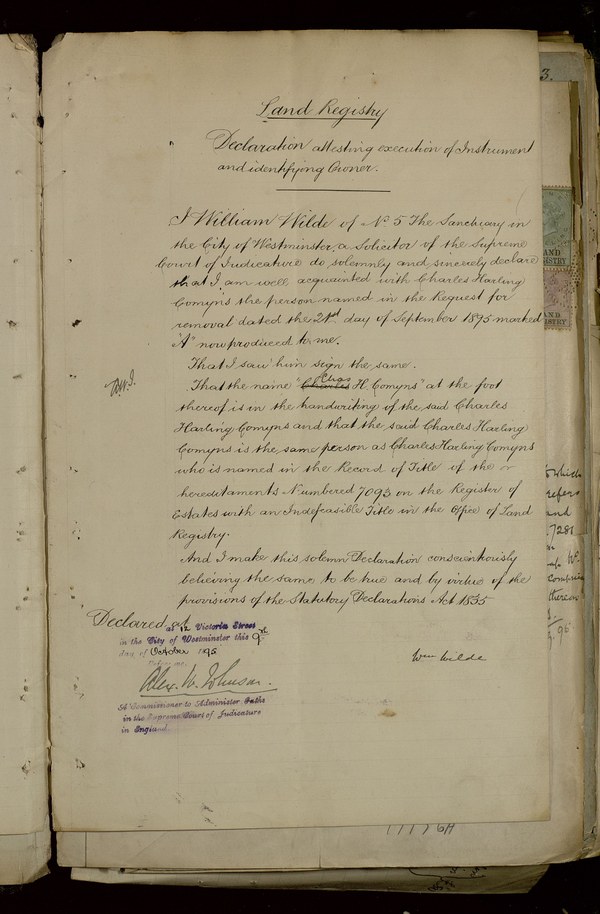 Land Registry
Declaration attesting execution of Instrument
and identifying Owner.
I William Wilde of No. 5 The Sanctuary in
the City of Westminster, a Solicitor of the Supreme
Court of Judicature do solemnly and sincerely declare
that I am well acquainted with Charles Harling
Comyns the person named in the Request for
removal dated the 21st day of September 1895 marked
"A" now produced to me.
That I saw him sign the same.
Chas
That the name "Charles H. Comyns" at the foot
thereof is in the handwriting of the said Charles
Harling Comyns and that the said Charles Harling
Comyns is the same person as Charles Harling Comyns
who is named in the Record of Title of the
hereditaments Numbered 7093 on the Register of
Estates with an Indefeasible Title in the Office of Land
Registry.
And I make this solemn Declaration conscientiously
believing the same to be true and by virtue of the
provisions of the Statutory Declarations Act 1835
Declared at
at 12 Victoria Street
in the City of Westminster this 9th
day of October 1895
Before me,
Wm Wilde
Alex. W. Johnson.
A Commissioner to Administer Oaths
in the Supreme Court of Judicature
in England.
3.
AND
ISTRY
AND
ISTRY
which
refers
and
7281